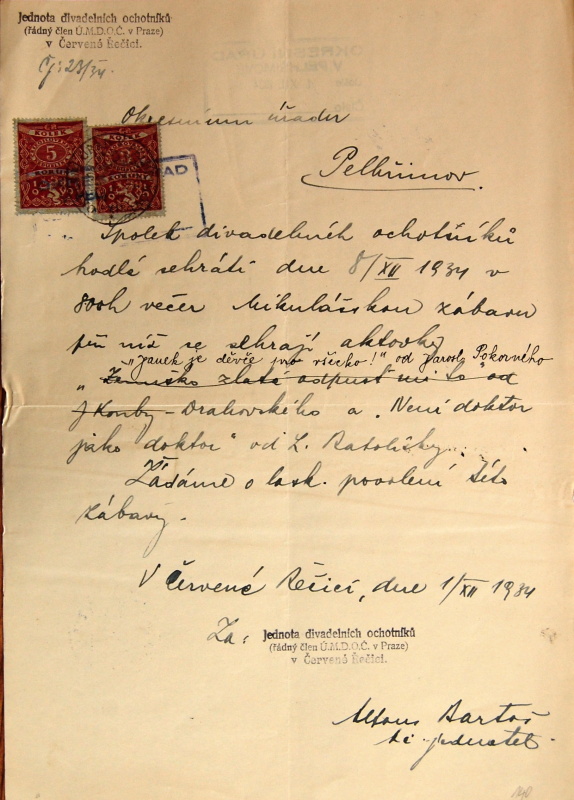 Jednota divadelních ochotníků
(řádný člen Ú.M.D.O.Č. v Praze)
v Červené Řečici.
Čj: 23/34.
Okresnímu úřadu
Pelhřimov.
KOLEK
5
KORUN
KOLEK
3
KORUNY
Spolek divadelních ochotníků
hodlá sehráti dne 8/XII 1934 v
800h večer Mikulášskou zábavu
při níž se sehrají aktovky
„Janek je děvče pro všecko!" od Jarosl. Pokorného
zlaté odpusť mi to" od
Drahovského a „Není doktor
jako doktor" od L. Batličky.
Žádáme o lask. povolení této
zábavy.
V Červené Řečici, dne 1/XII 1934
Za: Jednota divadelních ochotníků
(řádný člen Ú.M.D.O.Č. v Praze)
v Červené Řečici.
Alfons Bartoš
jednatel.